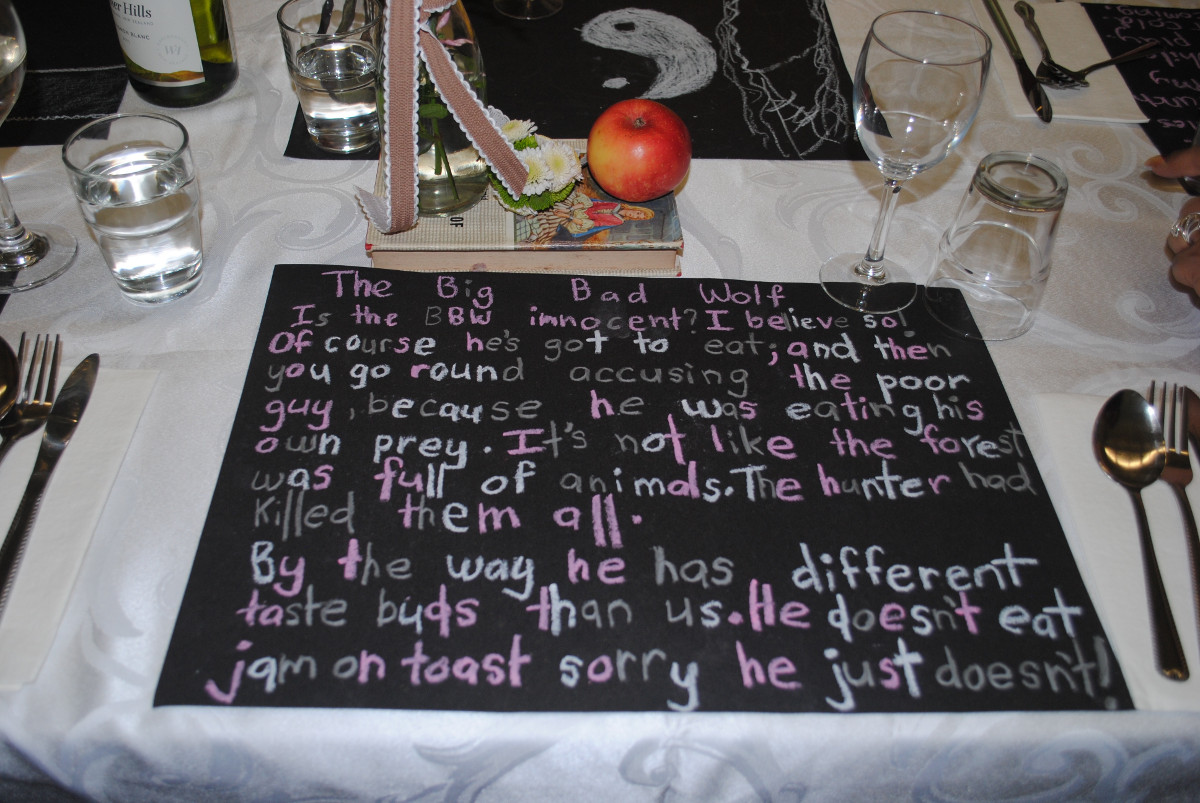 Hills
BLANC
OF
The Big Bad Wolf
Is the BBW innocent? I believe so!
Of course he's got to eat; and then
you go round accusing the poor
guy, because he was eating his
own prey. It's not like the forest
was full of animals. The hunter had
Killed them all.
By the way he has different
taste buds than us. He doesn't eat
jam on toast sorry he just doesn't!